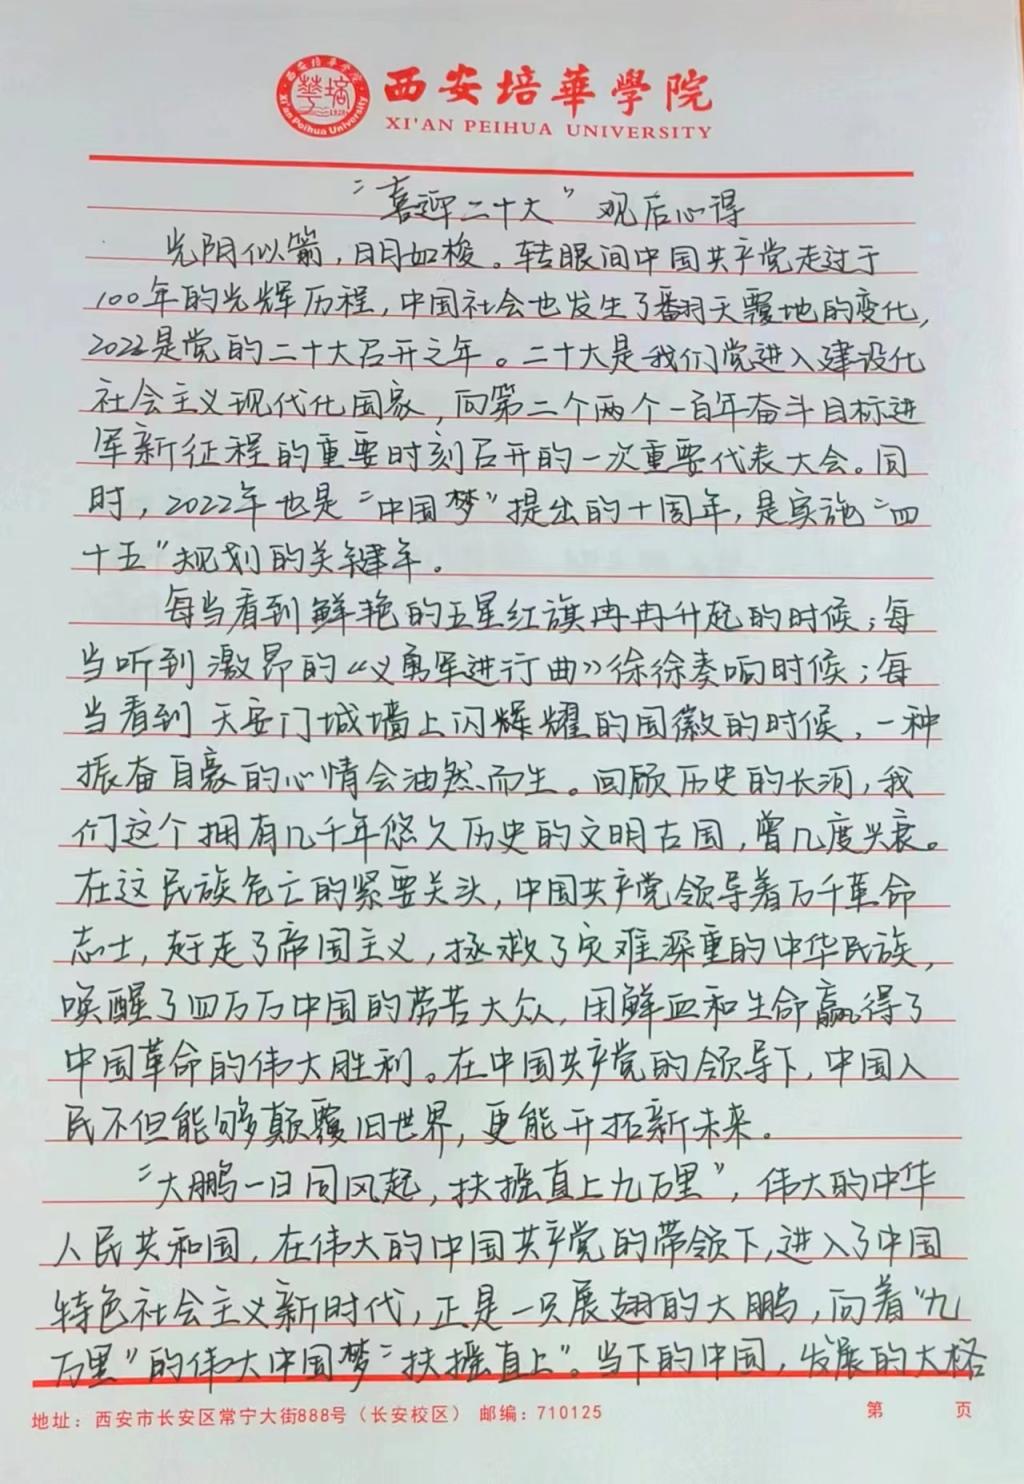 西安培華學院
XI'AN PEIHUA UNIVERSITY
“喜迎二十大”观后心得
光阴似箭,日月如梭。转眼间中国共产党走过于
100年的光辉历程,中国社会也发生了翻天覆地的变化,
2022是党的二十大召开之年。二十大是我们党进入建设化
社会主义现代化国家,向第二个两个一百年奋斗目标进
军新征程的重要时刻召开的一次重要代表大会。同
时,2022年也是“中国梦”提出的十周年,是实施“四
十五”规划的关键年。
每当看到鲜艳的五星红旗冉冉升起的时候;每
当听到激昂的《义勇军进行曲》徐徐奏响时候;每
当看到天安门城墙上闪辉耀的国徽的时候,一种
振奋自豪的心情会油然而生。回顾历史的长河,我
们这个拥有几千年悠久历史的文明古国,曾几度兴衰。
在这民族危亡的紧要关头,中国共产党领导着万千革命
志士,赶走了帝国主义,拯救了灾难深重的中华民族,
唤醒了四万万中国的劳苦大众,用鲜血和生命赢得了
中国革命的伟大胜利。在中国共产党的领导下,中国人
民不但能够颠覆旧世界,更能开拓新未来。
“大鹏一日同风起,扶摇直上九万里”,伟大的中华
人民共和国,在伟大的中国共产党的带领下,进入了中国
特色社会主义新时代,正是一只展翅的大鹏,向着“九
万里”的伟大中国梦“扶摇直上”。当下的中国,发展的大格
地址:西安市长安区常宁大街888号(长安校区) 邮编:710125 第 页